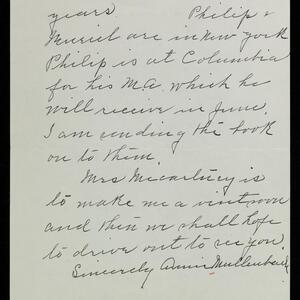 years Philip &
Muriel are in New York
Philip is at Columbia
for his M.A. which he
will receive in June.
I am sending the book
on to them.
Mrs McCartney is
to make me a visit soon
and then we shall hope
to drive out to see you.
Sincerely Annie Mullenbach